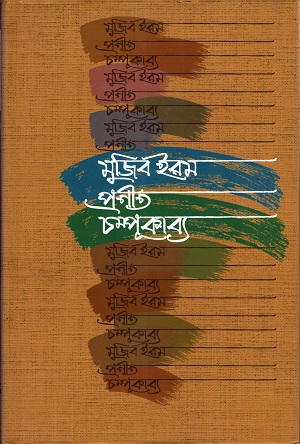 মুজিব ইরম
প্রণীত
চম্পূকাব্য
মুজিব ইরম
প্রণীত
চম্পূকাব্য
মুজিব ইরম
প্রণীত
মুজিব ইরম
প্রণীত
চম্পূকাব্য
মুজিব ইরম
প্রণীত
চম্পূকাব্য
মুজিব ইরম
প্রণীত
চম্পূকাব্য
মুজিব ইরম
প্রণীত
চম্পূকাব্য